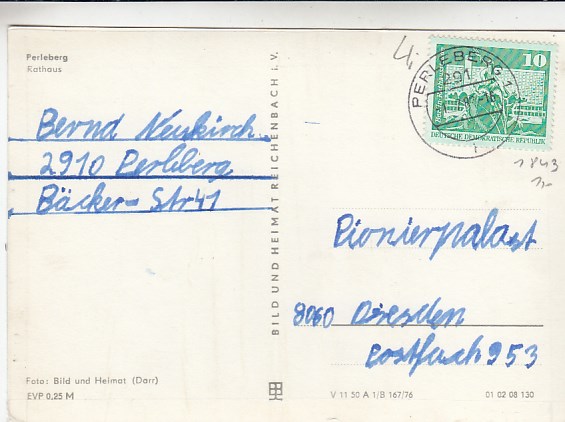 Perleberg
Rathaus
Bernd Neukirch
2910 Perleberg
Bäcker-Str 41
BILD UND HEIMAT REICHENBACH I. V.
10
DEUTSCHE DEMOKRATISCHE REPUBLIK
PERLEBERG 1
291
1843
1,-
Pionierpalast
8060 Dresden
Postfach 953
Foto: Bild und Heimat (Darr)
EVP 0,25 M
V 11 50 A 1/B 167/76
01 02 08 130